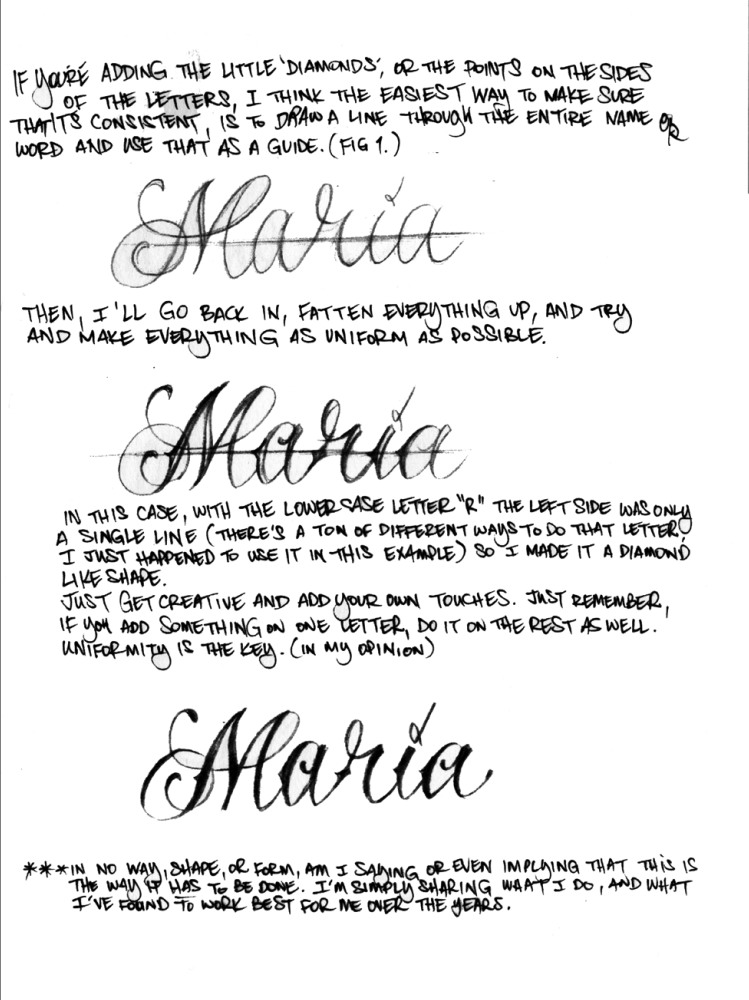 IF YOU'RE ADDING THE LITTLE 'DIAMONDS', OR THE POINTS ON THE SIDES
OF THE LETTERS, I THINK THE EASIEST WAY TO MAKE SURE
THAT IT'S CONSISTENT, IS TO DRAW A LINE THROUGH THE ENTIRE NAME OR
WORD AND USE THAT AS A GUIDE. (FIG 1.)
Maria
THEN, I'LL GO BACK IN, FATTEN EVERYTHING UP, AND TRY
AND MAKE EVERYTHING AS UNIFORM AS POSSIBLE.
Maria
IN THIS CASE, WITH THE LOWERCASE LETTER "R" THE LEFT SIDE WAS ONLY
A SINGLE LINE (THERE'S A TON OF DIFFERENT WAYS TO DO THAT LETTER,
I JUST HAPPENED TO USE IT IN THIS EXAMPLE) SO I MADE IT A DIAMOND
LIKE SHAPE.
JUST GET CREATIVE AND ADD YOUR OWN TOUCHES. JUST REMEMBER,
IF YOU ADD SOMETHING ON ONE LETTER, DO IT ON THE REST AS WELL.
UNIFORMITY IS THE KEY. (IN MY OPINION)
Maria
***IN NO WAY, SHAPE, OR FORM, AM I SAYING OR EVEN IMPLYING THAT THIS IS
THE WAY IT HAS TO BE DONE. I'M SIMPLY SHARING WHAT I DO, AND WHAT
I'VE FOUND TO WORK BEST FOR ME OVER THE YEARS.